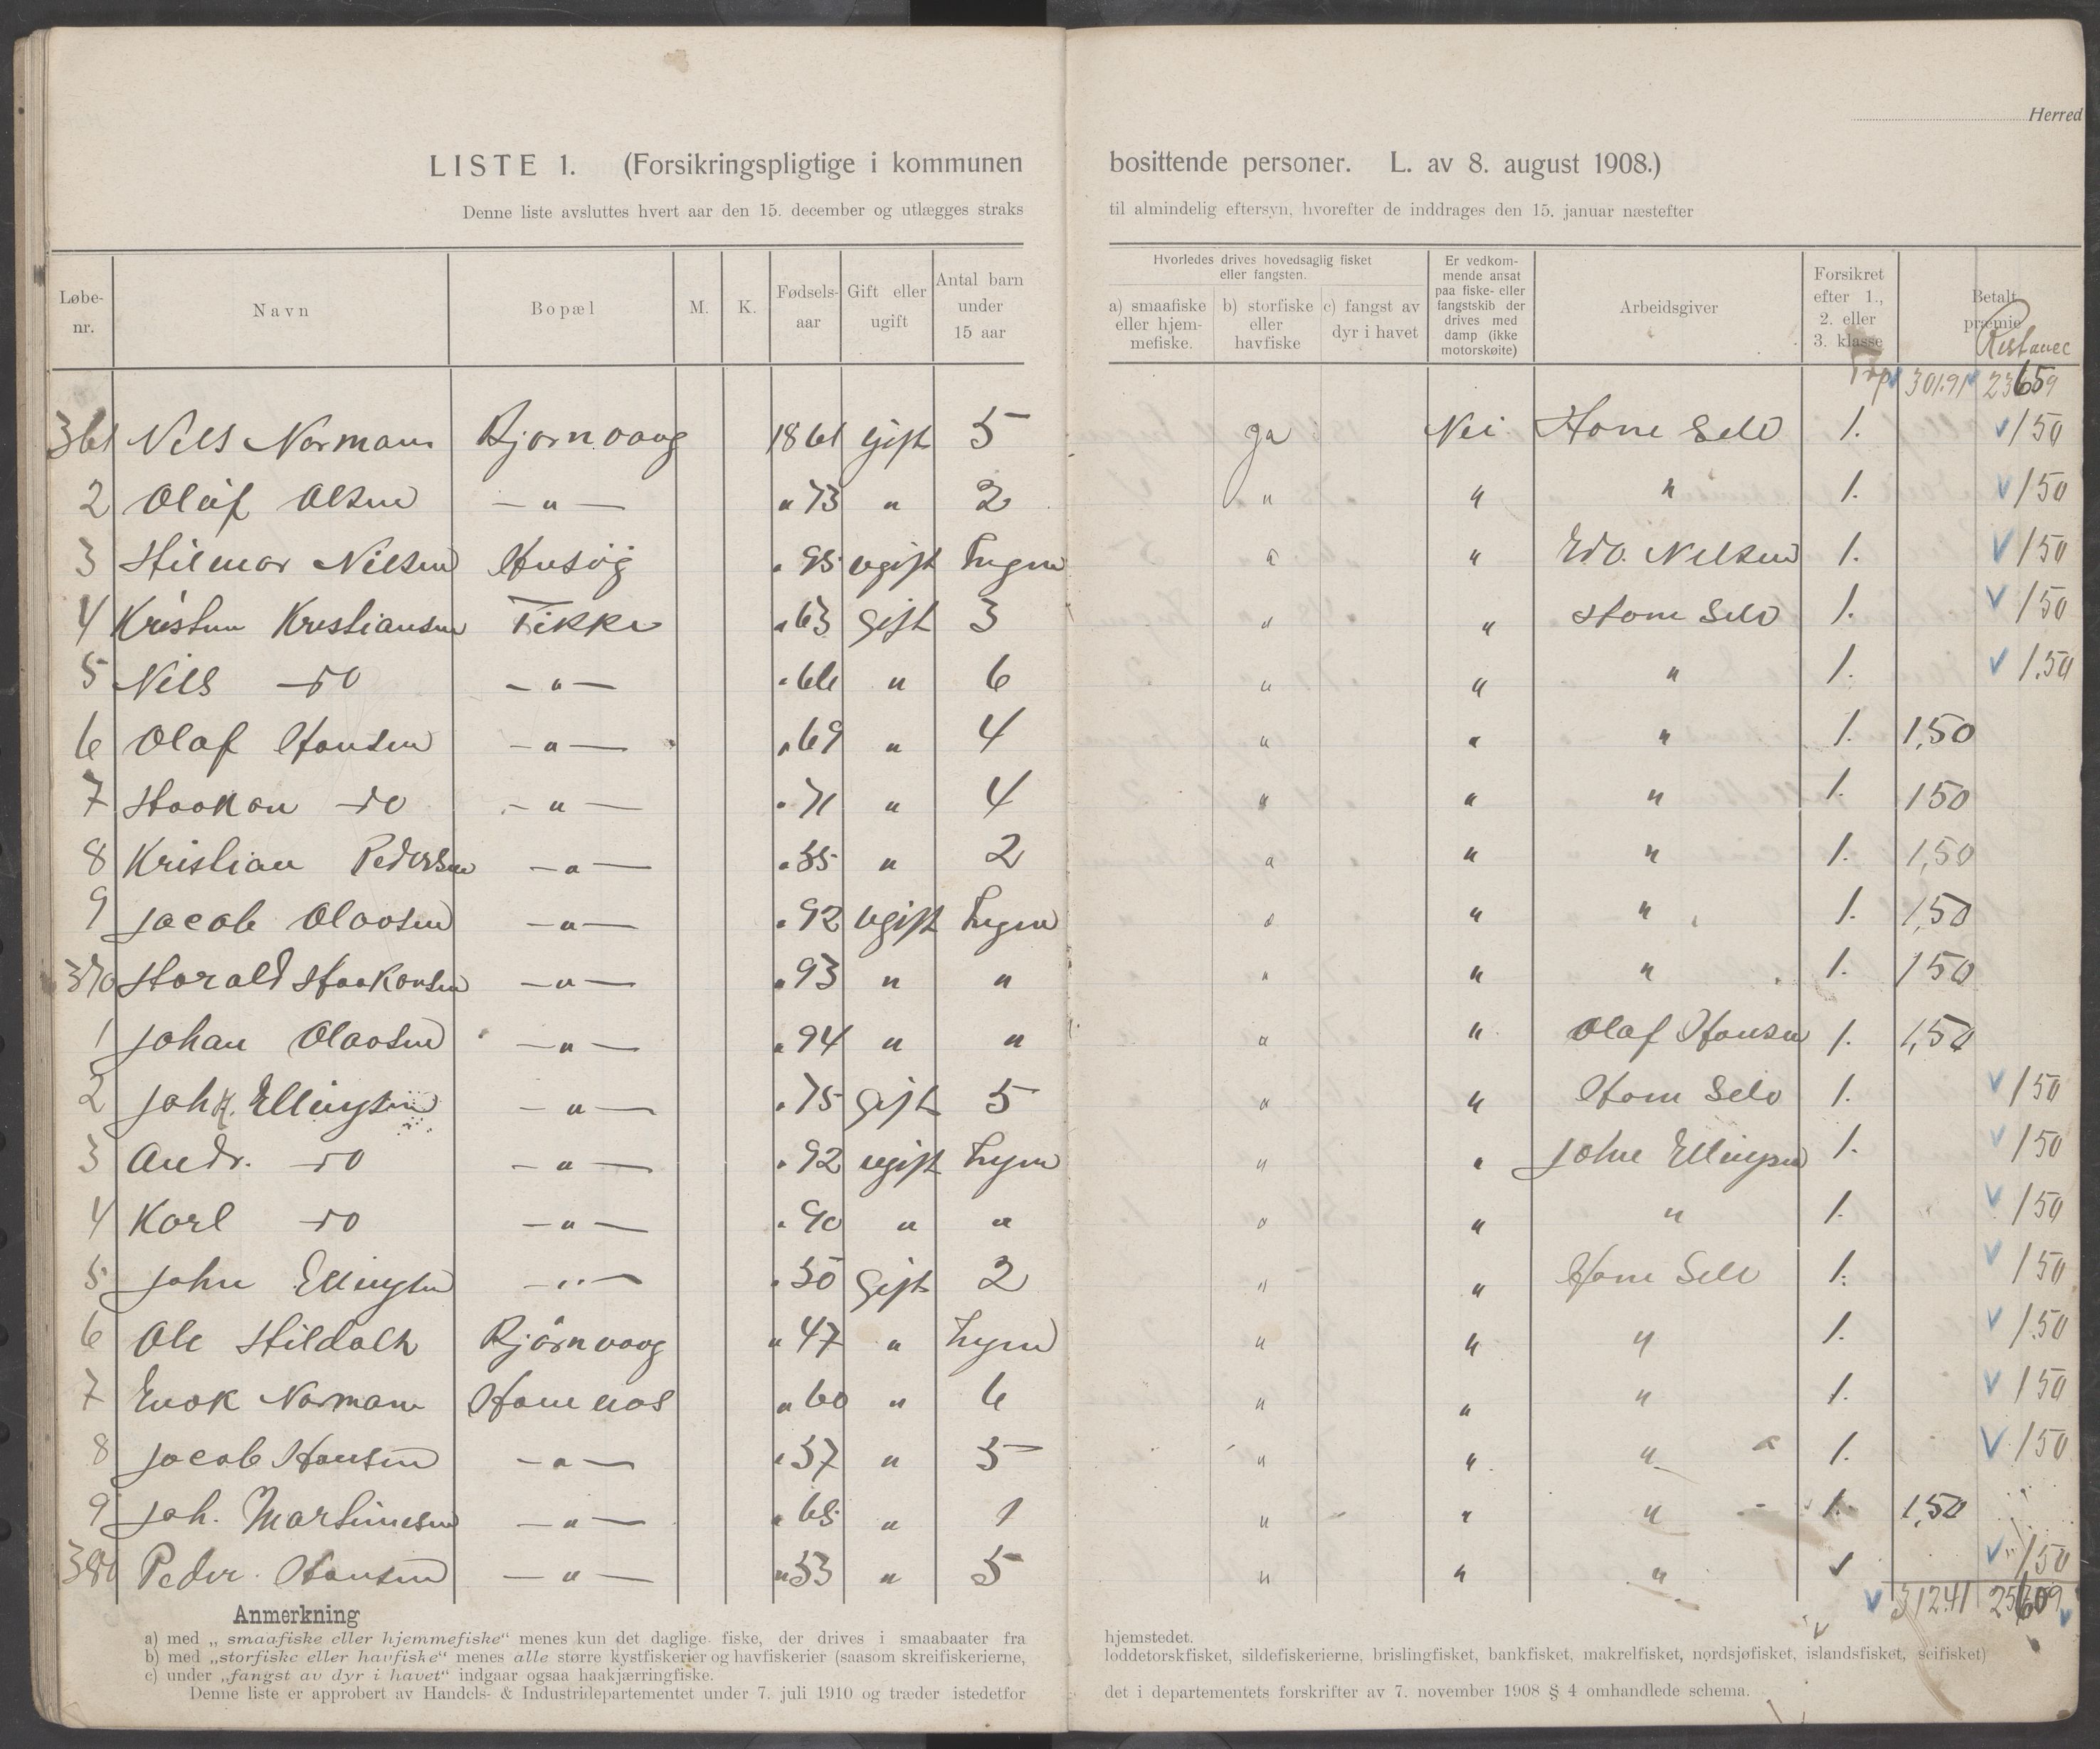 Herred
LISTE 1. (Forsikringspligtige i kommunen bosittende personer. L. av 8. august 1908.)
Denne liste avsluttes hvert aar den 15. december og utlægges straks til almindelig eftersyn, hvorefter de inddrages den 15. januar næstefter
Løbe-nr. Navn Bopæl M. K. Fødsels-aar Gift eller ugift Antal barn under 15 aar Hvorledes drives hovedsaglig fisket eller fangsten. a) smaafiske eller hjem-mefiske. b) storfiske eller havfiske c) fangst av dyr i havet Er vedkom-mende ansat paa fiske- eller fangstskib der drives med damp (ikke motorskøite) Arbeidsgiver Forsikret efter 1., 2. eller 3. klasse Betalt præmie Restance
Trp 301.91 23659
361 Nils Normann Bjørnvaag 1861 gift 5 ja Nei Ham Selv 1. 150
2 Olaf Olsen —"— " 73 " 2 " " " 1. 150
3 Hilmar Nilsen Husøy " 95 ugift Ingen " " Edv. Nilsen 1. 150
4 Kristen Kristiansen Tekke " 63 gift 3 " " Ham Selv 1. 150
5 Nils do —"— " 66 " 6 " " " 1. 1.50
6 Olaf Hansen —"— " 69 " 4 " " " 1. 1,50
7 Haakon do —"— " 71 " 4 " " " 1. 150
8 Kristian Pedersen —"— " 55 " 2 " " " 1. 1,50
9 Jacob Olavsen —"— " 92 ugift Ingen " " " 1. 1,50
370 Harald Haakonsen —"— " 93 " " " " " 1. 150
1 Johan Olavsen —"— " 94 " " " " Olaf Hansen 1. 1,50
2 Joh. Ellingsen —"— " 75 gift 5 " " Ham Selv 1. 150
3 Andr. do —"— " 92 ugift Ingen " " John Ellingsen 1. 150
4 Karl do —"— " 90 " " " " " 1. 150
5 John Ellingsen —"— " 50 gift 2 " " Ham Selv 1. 150
6 Ole Hildahl Bjørnvaag " 47 " Ingen " " " 1. 1.50
7 Enok Normann Hamnaas " 60 " 6 " " " 1. 150
8 Jacob Hansen —"— " 57 " 5 " " " 1. 150
9 Joh. Martinesen —"— " 65 " 1 " " " 1. 1,50
380 Peder Hansen —"— " 53 " 5 " " " 150
312.41 25609
Anmerkning
a) med „smaafiske eller hjemmefiske“ menes kun det daglige fiske, der drives i smaabaater fra hjemstedet.
b) med „storfiske eller havfiske“ menes alle større kystfiskerier og havfiskerier (saasom skreifiskerierne, loddetorskfisket, sildefiskerierne, brislingfisket, bankfisket, makrelfisket, nordsjøfisket, islandsfisket, seifisket)
c) under „fangst av dyr i havet“ indgaar ogsaa haakjærringfiske.
Denne liste er approbert av Handels- & Industridepartementet under 7. juli 1910 og træder istedetfor det i departementets forskrifter av 7. november 1908 § 4 omhandlede schema.